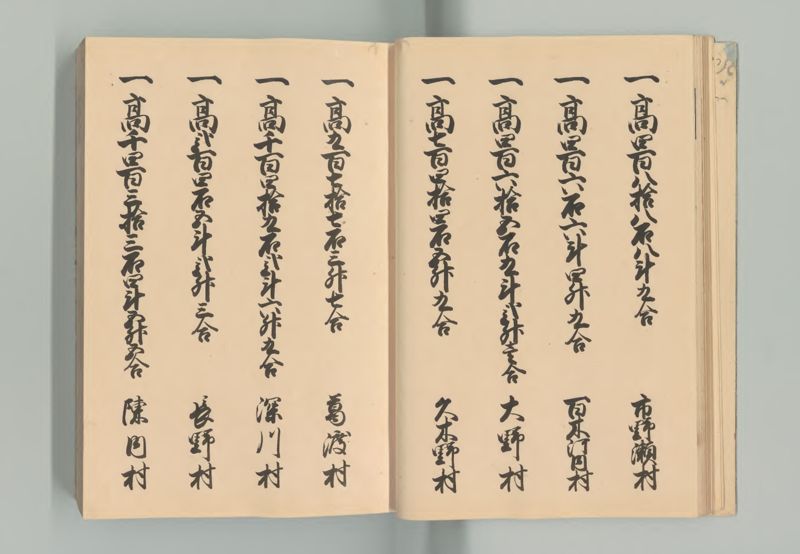 一高四百八拾八石八斗九合 市野瀬村
一高四百六石六斗四升九合 百木河内村
一高四百六拾五石九斗弐升壱合 大野村
一高七百四拾四石五升九合 久木野村
一高九百七拾七石三升七合 葛渡村
一高千百四拾九石弐斗六升九合 深川村
一高弐百四石五斗弐升三合 長野村
一高千四百三拾三石四斗五升五合 陳内村